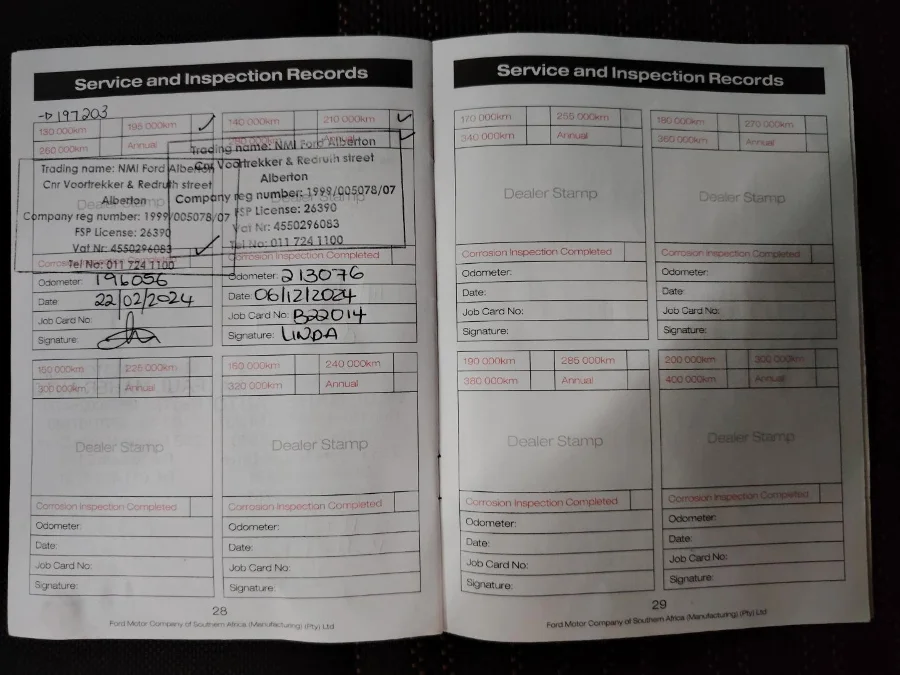 Service and Inspection Records
197203
130 000km 195 000km
260 000km Annual
Dealer Stamp
Trading name: NMI Ford Alberton
Cnr Voortrekker & Redruth street
Alberton
Company reg number: 1999/005078/07
FSP License: 26390
Vat Nr: 4550296083
Tel No: 011 724 1100
Odometer: 196056
Date: 22/02/2024
Job Card No:
Signature:
140 000km 210 000km
280 000km Annual
Trading name: NMI Ford Alberton
Cnr Voortrekker & Redruth street
Alberton
Company reg number: 1999/005078/07
FSP License: 26390
Vat Nr: 4550296083
Tel No: 011 724 1100
Corrosion Inspection Completed
Odometer: 213076
Date: 06/12/2024
Job Card No: B22014
Signature: LINDA
150 000km 225 000km
300 000km Annual
Dealer Stamp
Corrosion Inspection Completed
Odometer:
Date:
Job Card No:
Signature:
160 000km 240 000km
320 000km Annual
Dealer Stamp
Corrosion Inspection Completed
Odometer:
Date:
Job Card No:
Signature:
28
Ford Motor Company of Southern Africa (Manufacturing) (Pty) Ltd
Service and Inspection Records
170 000km 255 000km
340 000km Annual
Dealer Stamp
Corrosion Inspection Completed
Odometer:
Date:
Job Card No:
Signature:
180 000km 270 000km
360 000km Annual
Dealer Stamp
Corrosion Inspection Completed
Odometer:
Date:
Job Card No:
Signature:
190 000km 285 000km
380 000km Annual
Dealer Stamp
Corrosion Inspection Completed
Odometer:
Date:
Job Card No:
Signature:
200 000km 300 000km
400 000km Annual
Dealer Stamp
Corrosion Inspection Completed
Odometer:
Date:
Job Card No:
Signature:
29
Ford Motor Company of Southern Africa (Manufacturing) (Pty) Ltd